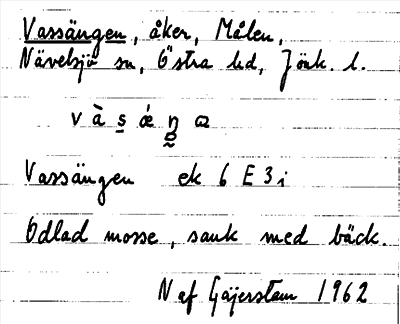 Vassängen, åker, Målen,
Nävelsjö sn, Östra hd, Jönk. l.
v à s ǽ ŋ ɷ
Vassängen ek 6 E 3 i
Odlad mosse, sank med bäck.
N af Gäjerstam 1962